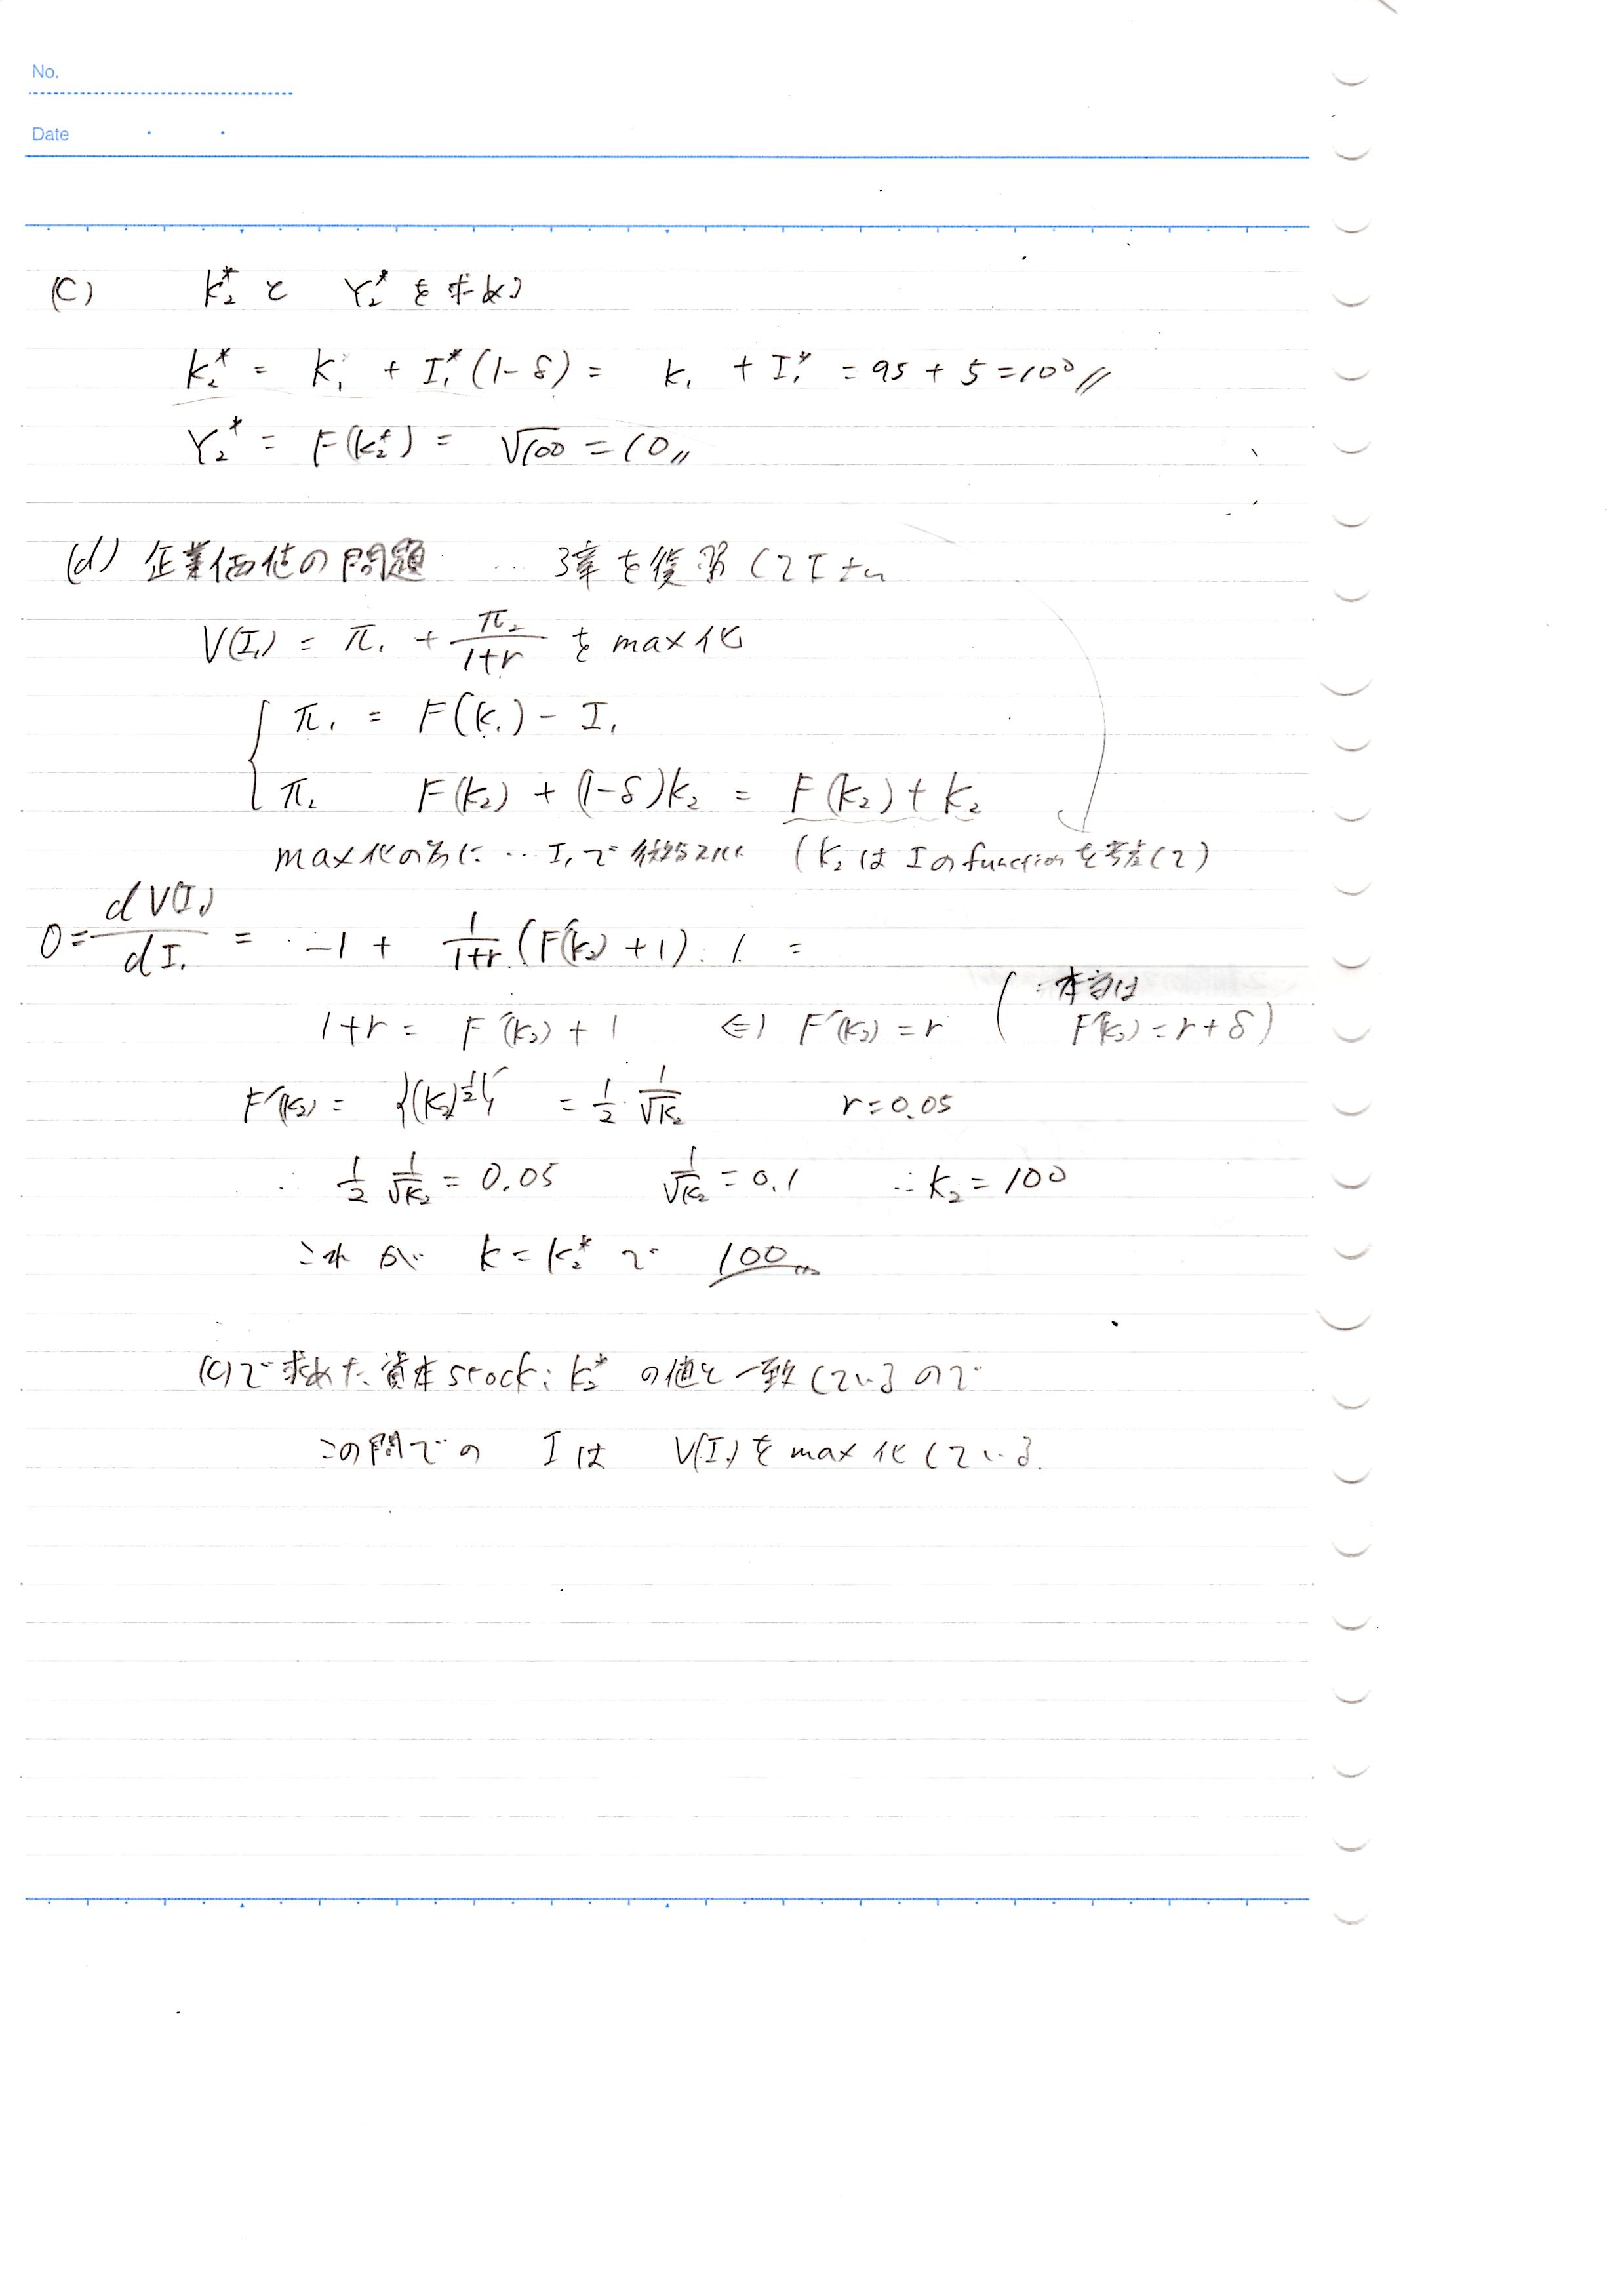 No.
Date
(c) K₂* と Y₂* を求める
K₂* = K₁ + I₁*(1-δ) = K₁ + I₁* = 95 + 5 = 100 //
Y₂* = F(K₂*) = √100 = 10 //
(d) 企業価値の問題 … 3章を復習して
V(I₁) = π₁ + π₂/(1+r) を max化
π₁ = F(K₁) - I₁
π₂ F(K₂) + (1-δ)K₂ = F(K₂) + K₂
max化の為に … I₁で (K₂は Iのfunctionを考慮して)
0 = dV(I₁)/dI₁ = -1 + 1/(1+r) (F'(K₂) + 1)・1 =
1+r = F'(K₂) + 1 ⇔ F'(K₂) = r (本当は F'(K₂) = r + δ)
F'(K₂) = {(K₂)^½}' = 1/2・1/√K₂ r = 0.05
∴ 1/2 1/√K₂ = 0.05 1/√K₂ = 0.1 ∴ K₂ = 100
これが K = K₂* で 100 //
(c)で求めた資本stock: K₂* の値と一致しているので
この問での Iは V(I₁)を max化している.